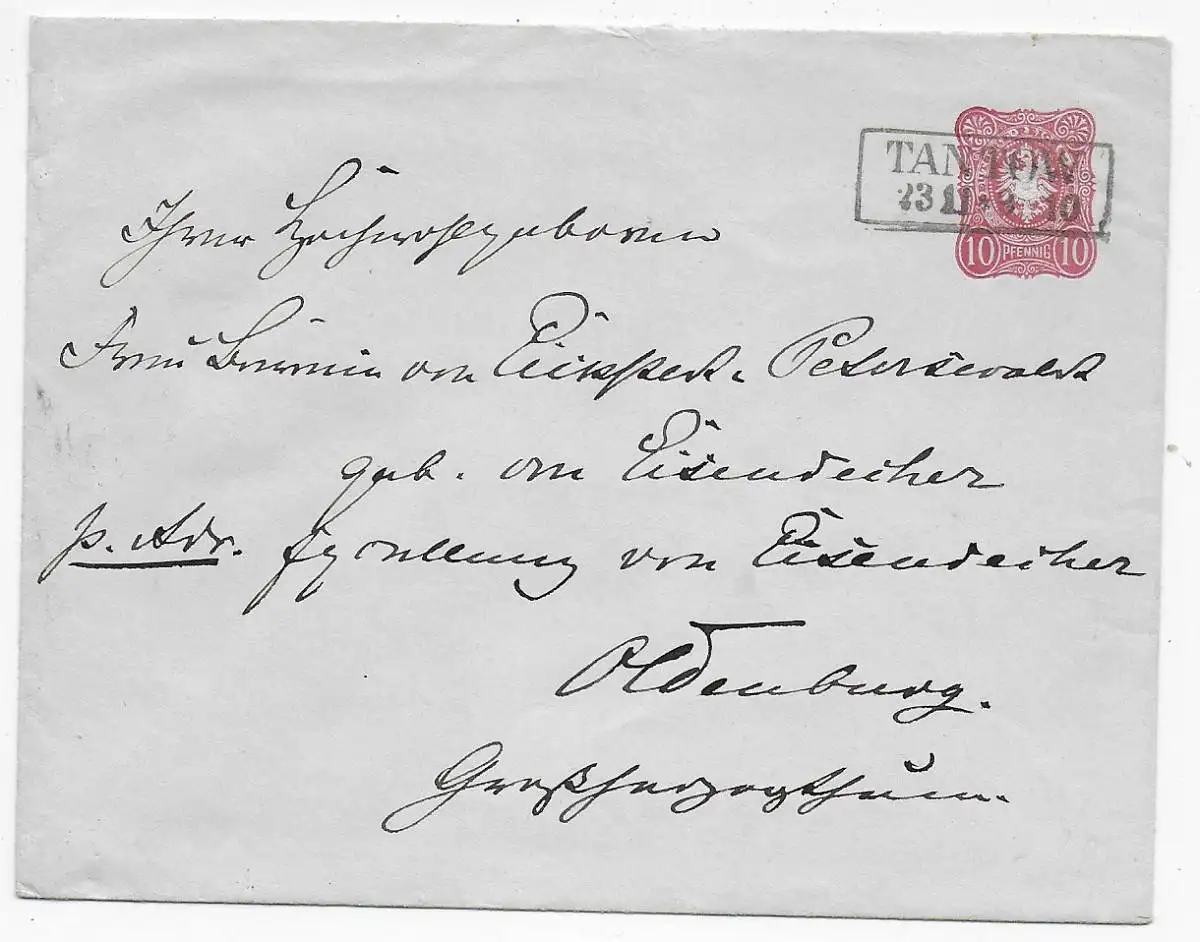 TANTOW
23 11 10
10 PFENNIG 10
Ihrer Hochwohlgeboren
Frau Baronin von Eickstedt-Peterswaldt
geb. von Eisendecher
p. Adr. von Eisendecher
Oldenburg.
Großherzogthum.